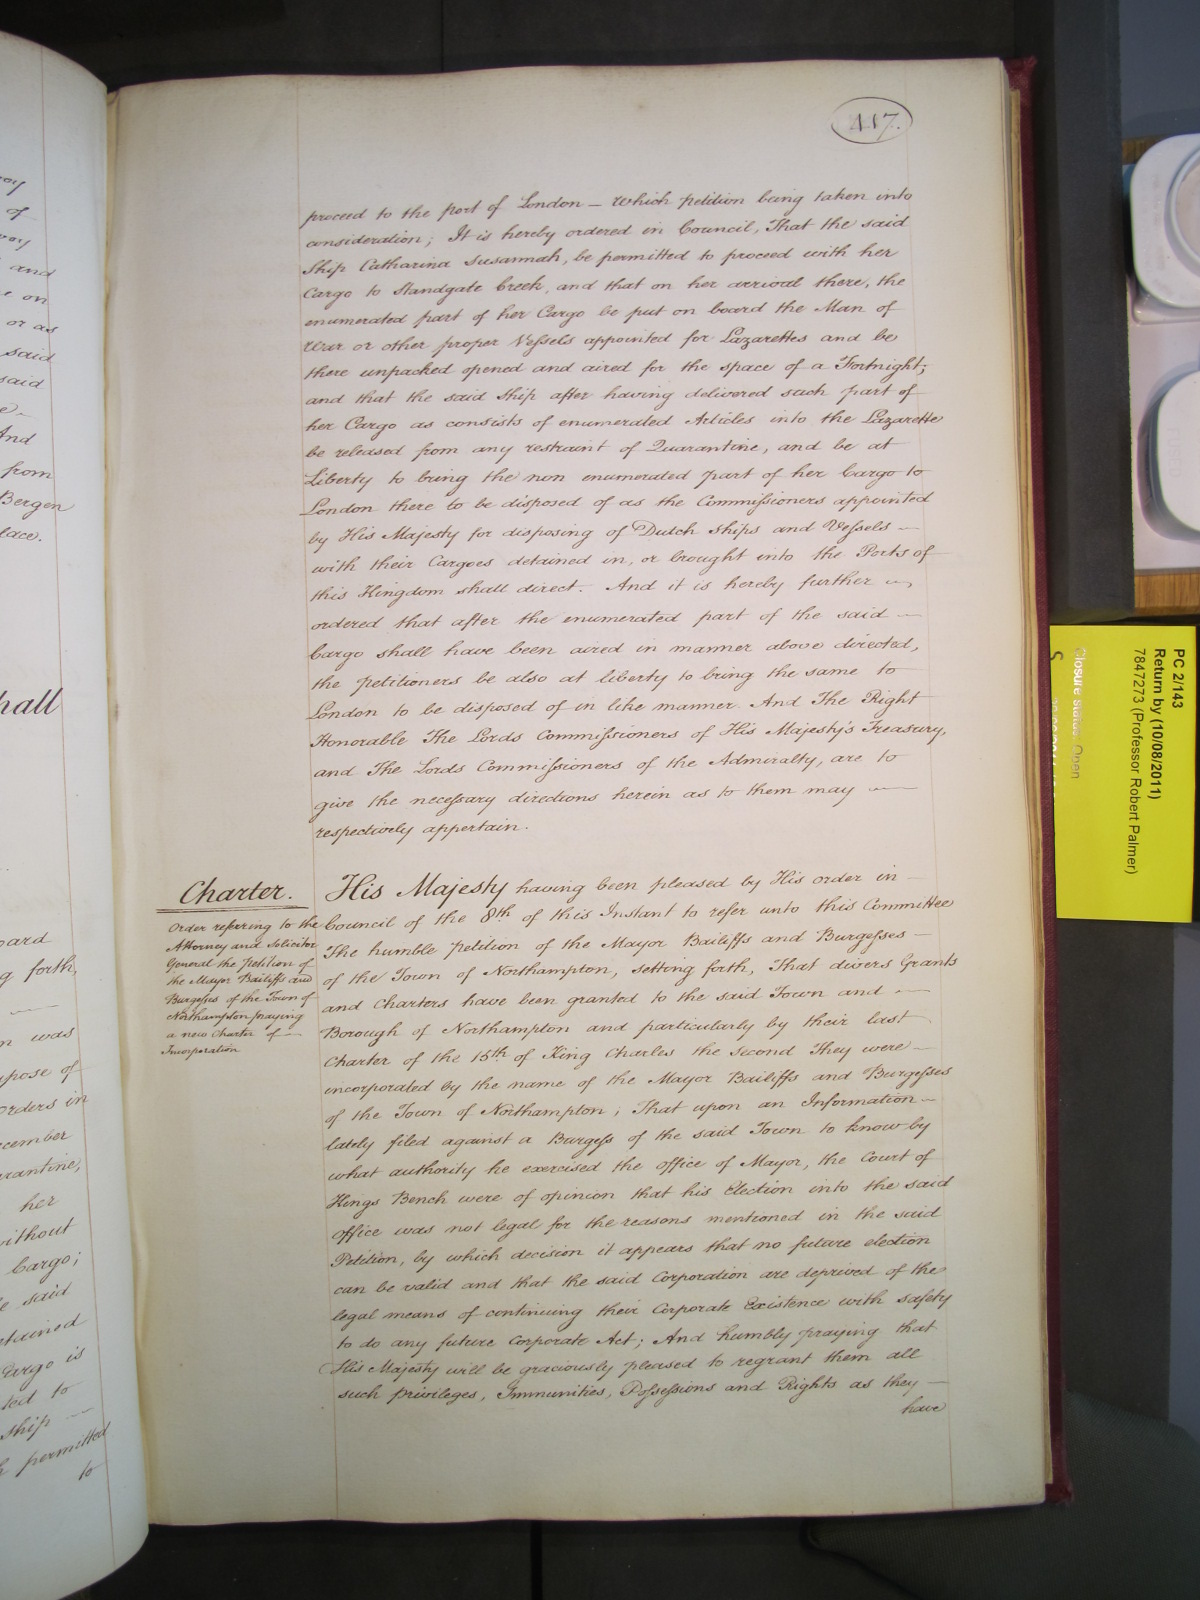 417.
proceed to the port of London — Which petition being taken into
consideration; It is hereby ordered in Council, That the said
Ship Catharina Susannah, be permitted to proceed with her
Cargo to Standgate Creek, and that on her arrival there, the
enumerated part of her Cargo be put on board the Man of
War or other proper Vessels appointed for Lazarettes and be
there unpacked opened and aired for the space of a Fortnight;
and that the said Ship after having delivered such part of
her Cargo as consists of enumerated Articles into the Lazarette
be released from any restraint of Quarantine, and be at
Liberty to bring the non enumerated part of her Cargo to
London there to be disposed of as the Commissioners appointed
by His Majesty for disposing of Dutch Ships and Vessels —
with their Cargoes detained in, or brought into the Ports of
this Kingdom shall direct. And it is hereby further —
ordered that after the enumerated part of the said —
Cargo shall have been aired in manner above directed,
the petitioners be also at liberty to bring the same to
London to be disposed of in like manner. And The Right
Honorable The Lords Commissioners of His Majesty's Treasury,
and The Lords Commissioners of the Admiralty, are to
give the necessary directions herein as to them may —
respectively appertain.
Charter.
Order refering to the
Attorney and Solicitor
General the Petition of
the Mayor Bailiffs and
Burgesses of the Town of
Northampton praying
a new Charter of —
Incorporation
His Majesty having been pleased by His order in —
Council of the 8th of this Instant to refer unto this Committee
The humble petition of the Mayor Bailiffs and Burgesses —
of the Town of Northampton, setting forth, That divers Grants
and Charters have been granted to the said Town and —
Borough of Northampton and particularly by their last
Charter of the 15th of King Charles the Second They were —
incorporated by the name of the Mayor Bailiffs and Burgesses
of the Town of Northampton; That upon an Information —
lately filed against a Burgess of the said Town to know by
what authority he exercised the office of Mayor, the Court of
Kings Bench were of opinion that his Election into the said
office was not legal for the reasons mentioned in the said
Petition, by which decision it appears that no future election
can be valid and that the said Corporation are deprived of the
legal means of continuing their Corporate Existence with safety
to do any future Corporate Act; And humbly praying that
His Majesty will be graciously pleased to regrant them all
such privileges, Immunities, Possessions and Rights as they —
have
of
and
on
or as
said
said
And
from
Bergen
hall
forth,
was
of
Orders in
her
Cargo;
said
Cargo is
to
Ship —
permitted
to
PC 2/143
Return by (10/08/2011)
7847273 (Professor Robert Palmer)
Closure status: Open